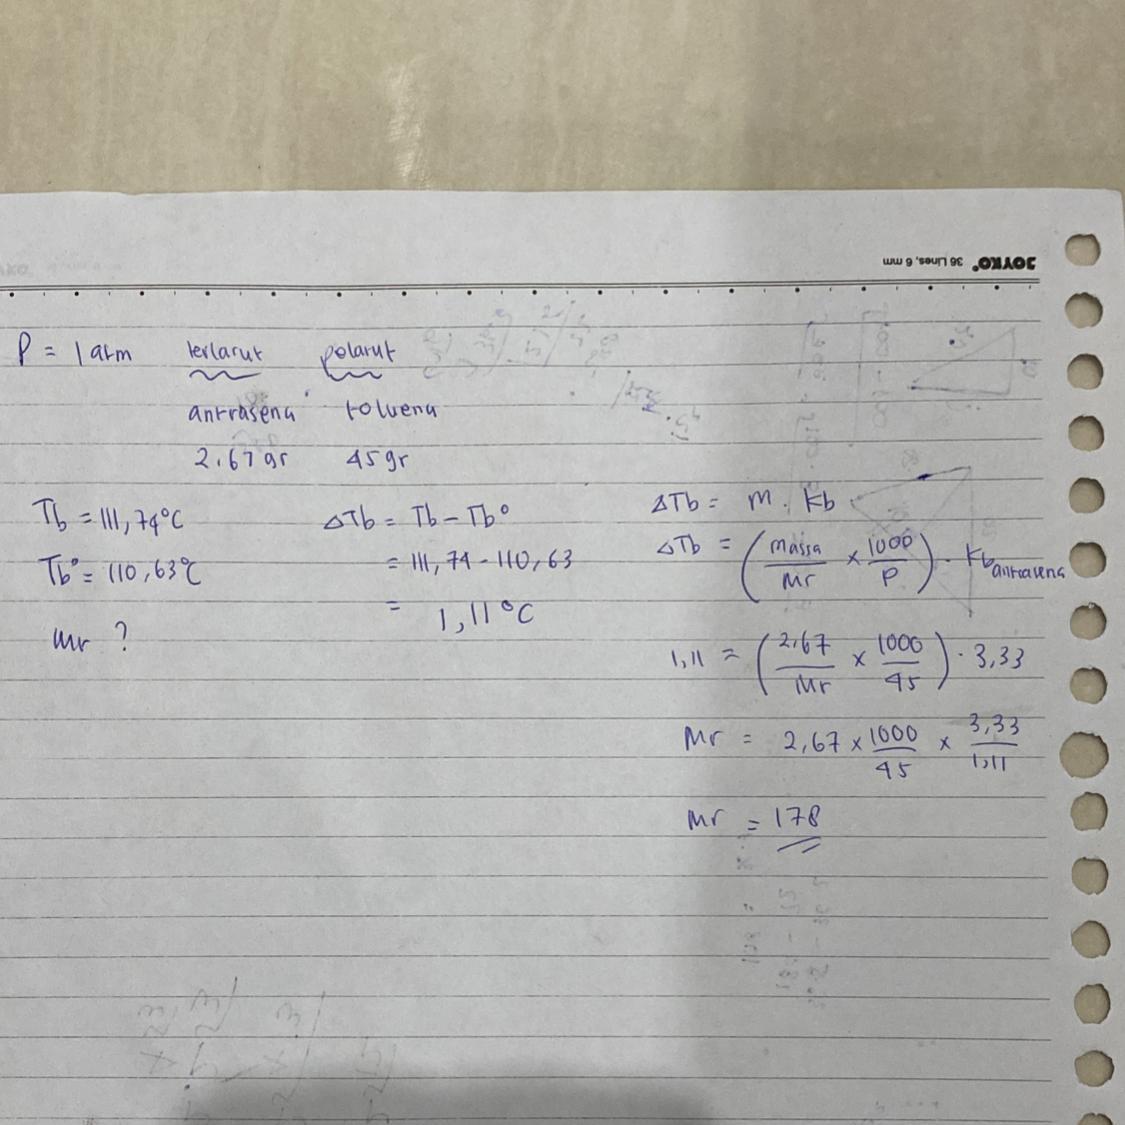 JOYKO® 36 Lines, 6 mm
P = 1 atm terlarut pelarut
antrasena toluena
2.67 gr 45 gr
Tb = 111,74°C
Tb° = 110,63°C
Mr ?
ΔTb = Tb - Tb°
= 111,74 - 110,63
= 1,11°C
ΔTb = m . Kb
ΔTb = (massa/Mr × 1000/P) . Kb antrasena
1,11 = (2,67/Mr × 1000/45) . 3,33
Mr = 2,67 × 1000/45 × 3,33/1,11
Mr = 178